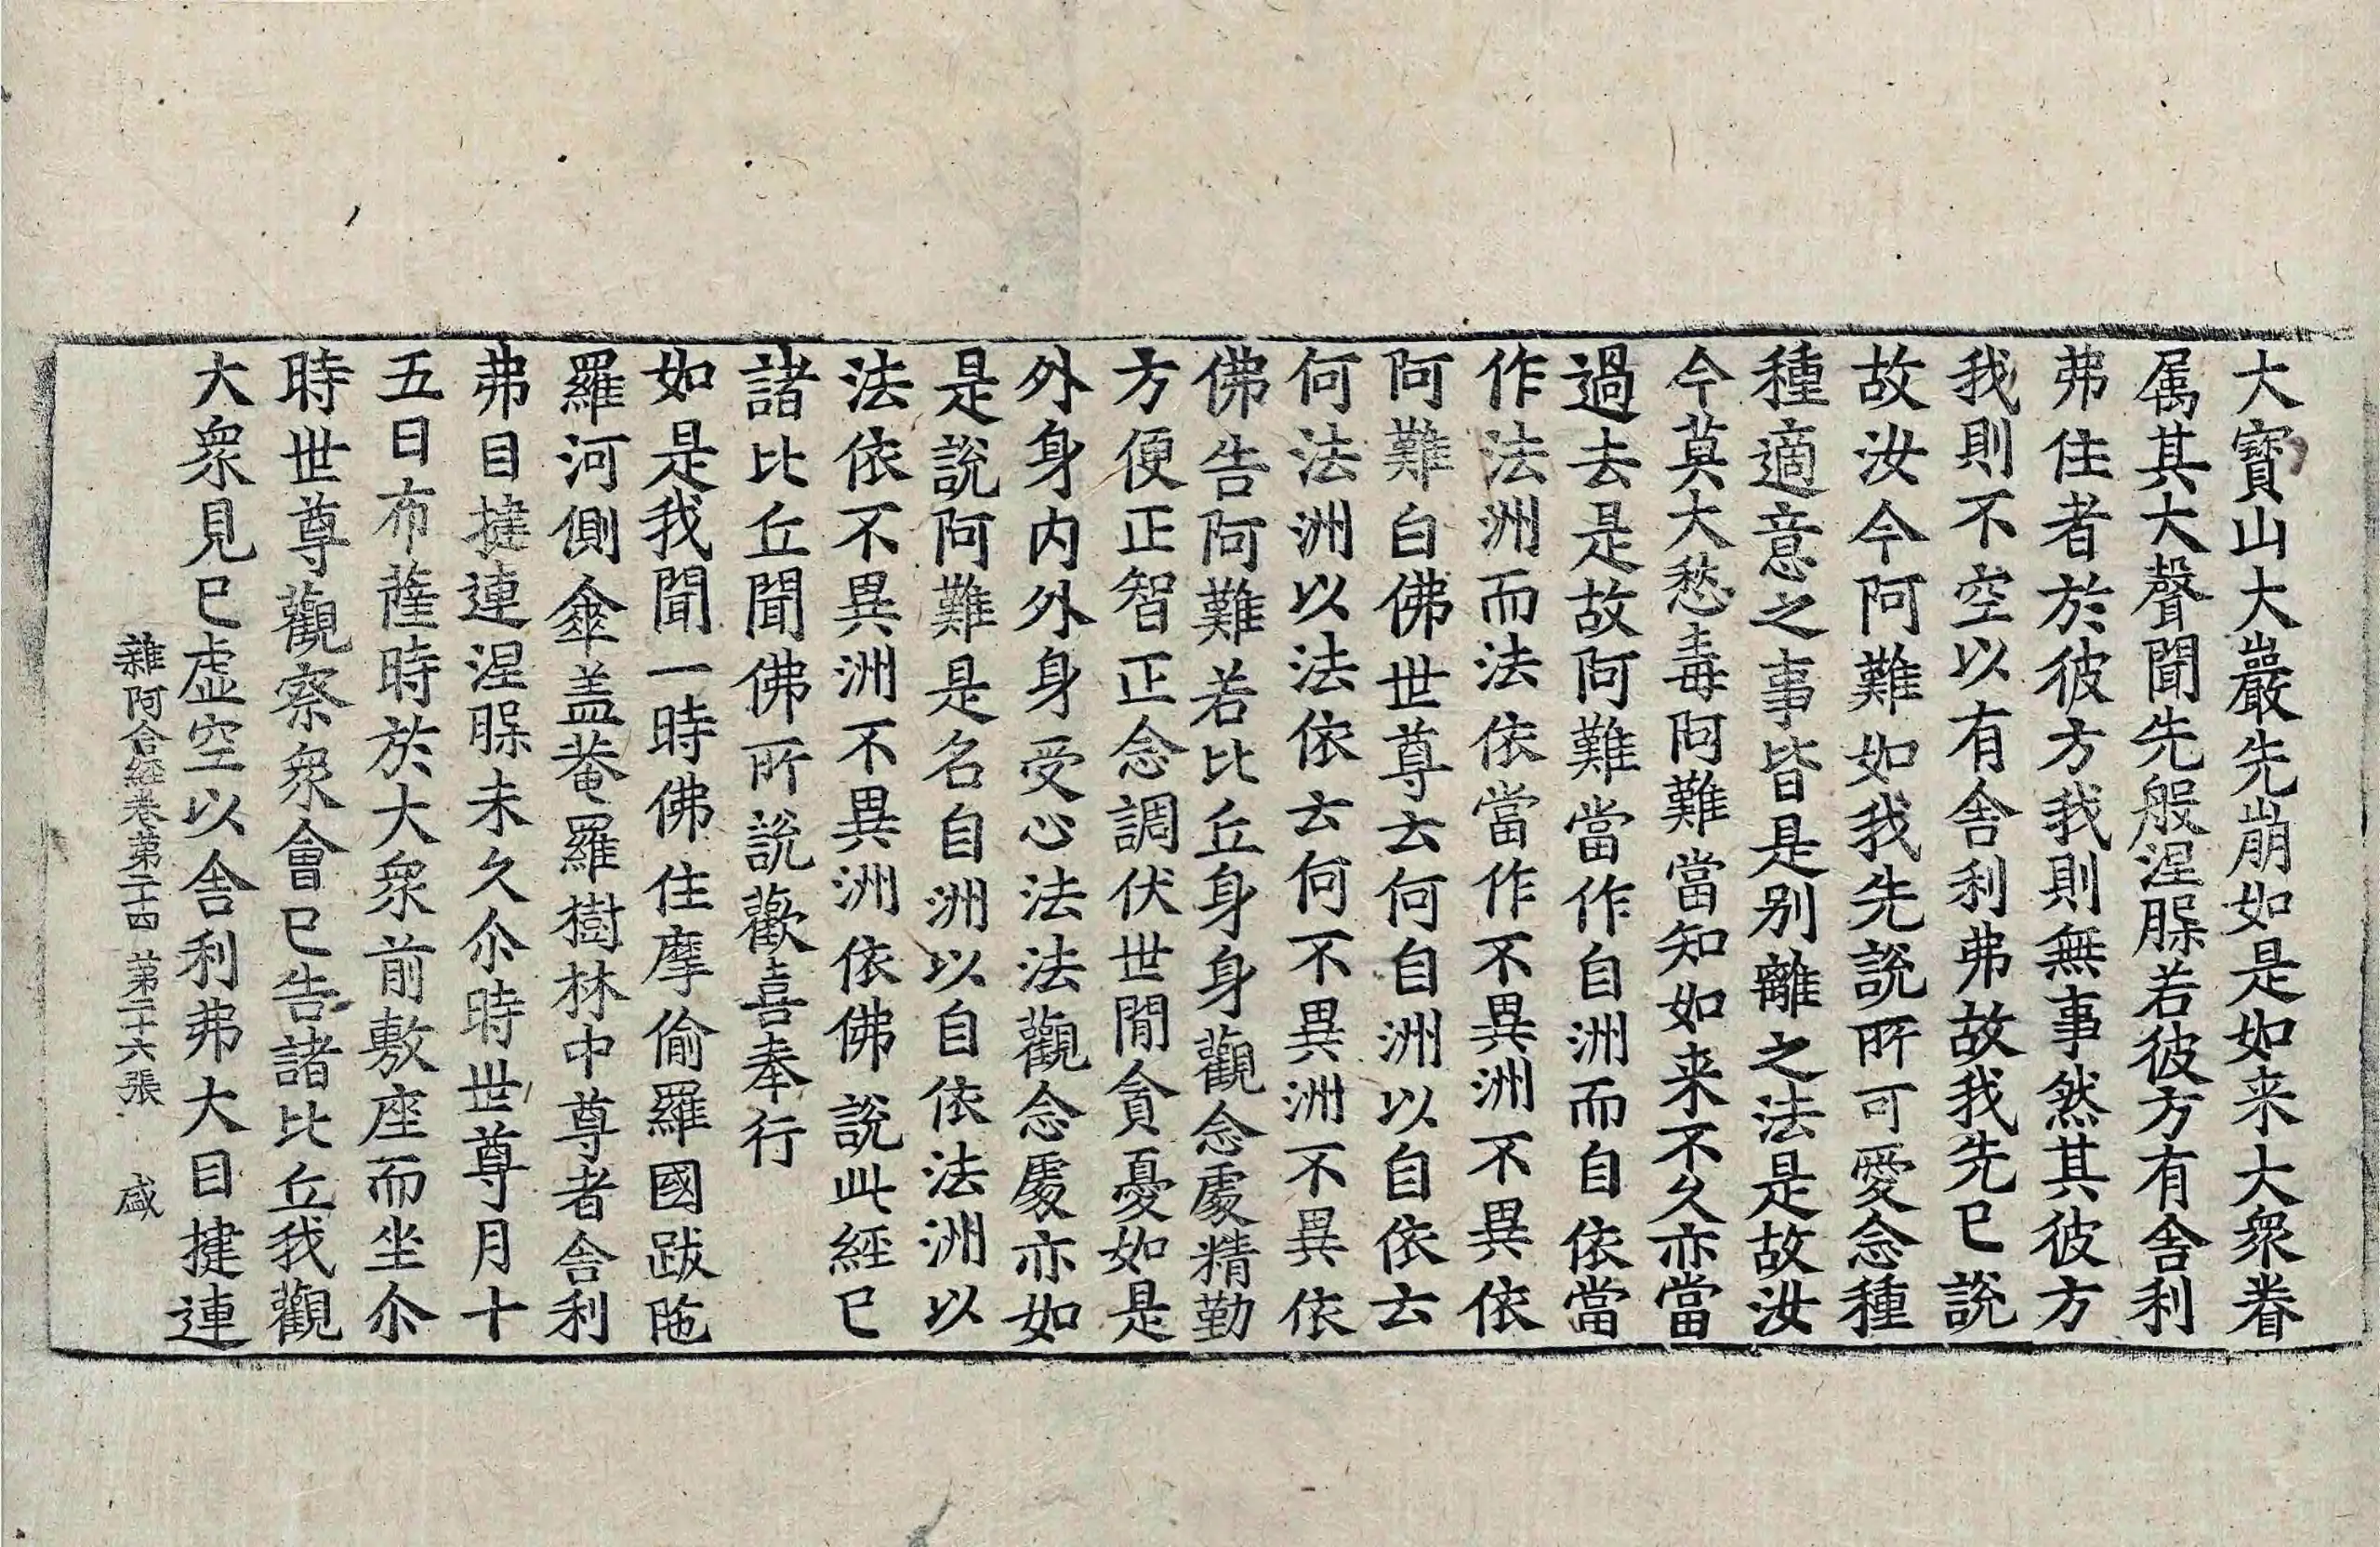 大寶山大巖先崩如是如来大衆眷
属其大聲聞先般涅槃若彼方有舎利
弗住者於彼方我則無事然其彼方
我則不空以有舎利弗故我先已說
故汝今阿難如我先說所可愛念種
種適意之事皆是别離之法是故汝
今莫大愁毒阿難當知如来不久亦當
過去是故阿難當作自洲而自依當
作法洲而法依當作不異洲不異依
阿難白佛世尊云何自洲以自依云
何法洲以法依云何不異洲不異依
佛告阿難若比丘身身觀念處精勤
方便正智正念調伏世閒貪憂如是
外身内外身受心法法觀念處亦如
是說阿難是名自洲以自依法洲以
法依不異洲不異洲依佛說此經已
諸比丘聞佛所說歡喜奉行
如是我聞一時佛住摩偷羅國跋陁
羅河側傘盖菴羅樹林中尊者舎利
弗目揵連涅槃未久尒時世尊月十
五日布薩時於大衆前敷座而坐尒
時世尊觀察衆會已告諸比丘我觀
大衆見已虛空以舎利弗大目揵連
雜阿含経卷第二十四 第二十六張 盛